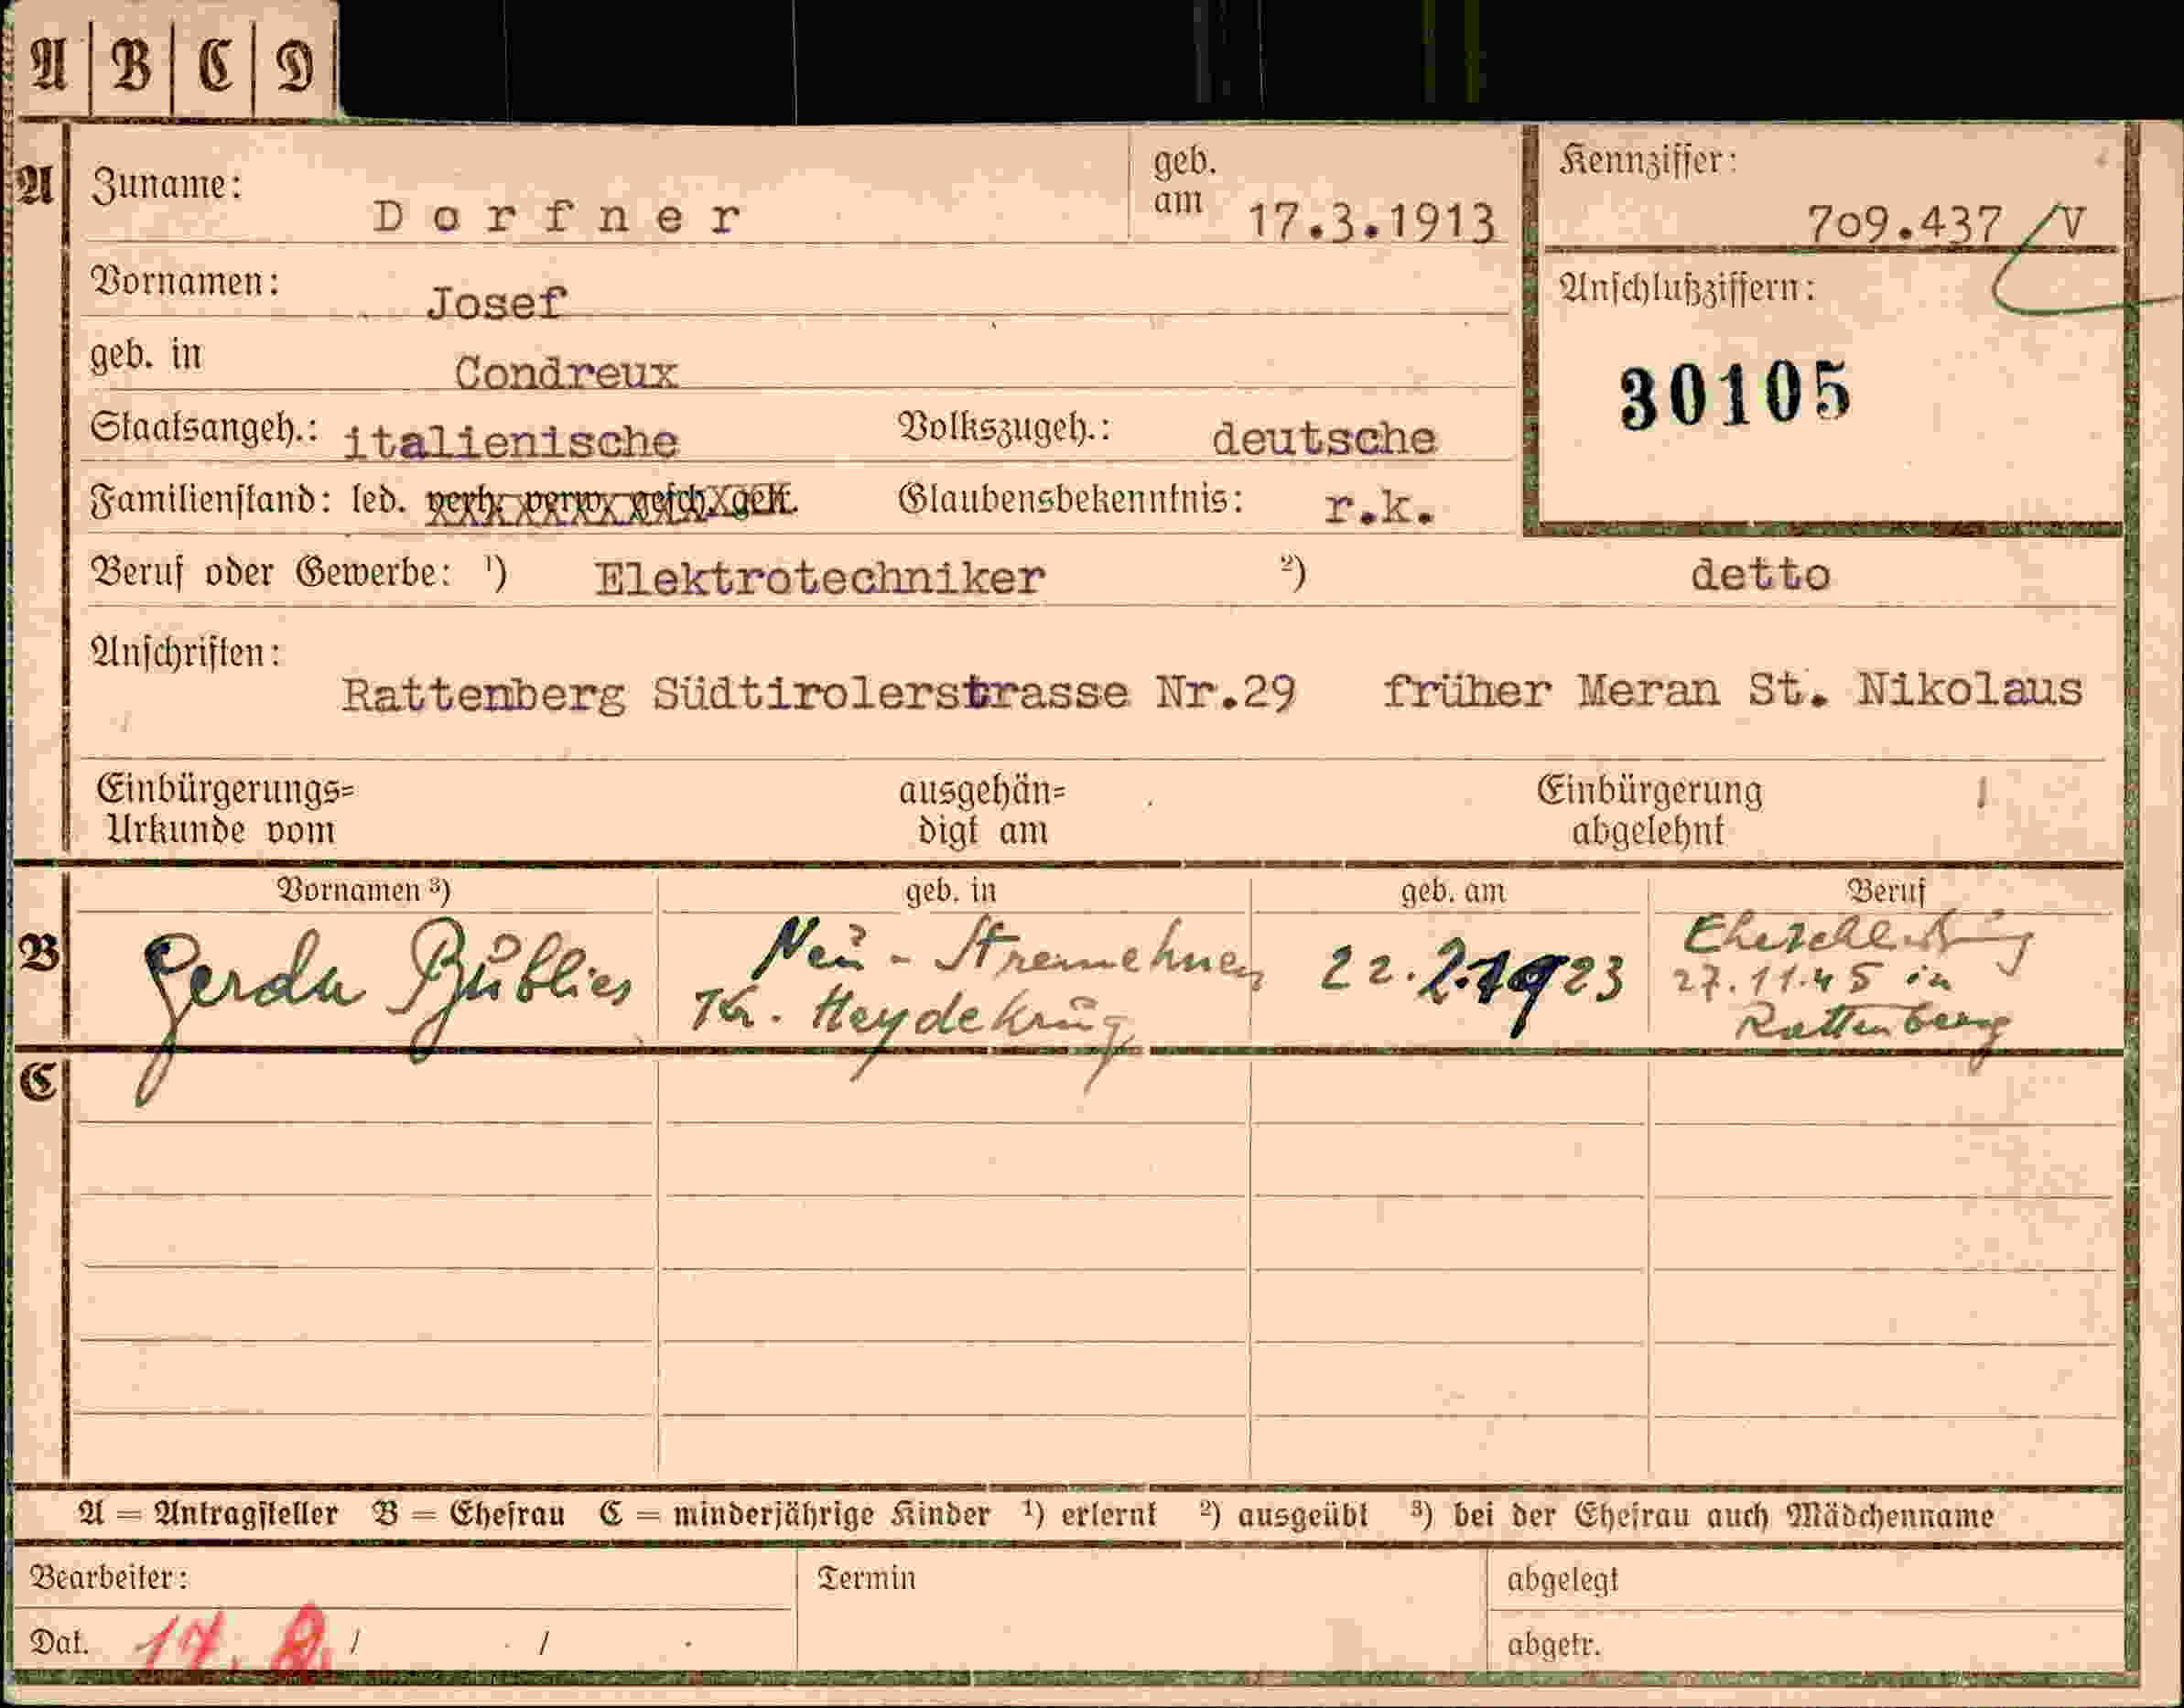 A B C D
A Zuname: Dorfner geb. am 17.3.1913 Kennziffer: 709.437 /V
Vornamen: Josef Anschlußziffern:
geb. in Condreux 30105
Staatsangeh.: italienische Volkszugeh.: deutsche
Familienstand: led. verh. verw. gesch. getr. Glaubensbekenntnis: r.k.
Beruf oder Gewerbe: ¹) Elektrotechniker ²) detto
Anschriften:
Rattenberg Südtirolerstrasse Nr.29 früher Meran St. Nikolaus
Einbürgerungs= ausgehän= Einbürgerung
Urkunde vom digt am abgelehnt
Vornamen ³) geb. in geb. am Beruf
B Gerda Neu - 22.2.1923 Eheschließung
Kr. Heydekrug 27.11.45 in
Rattenberg
C
A = Antragsteller B = Ehefrau C = minderjährige Kinder ¹) erlernt ²) ausgeübt ³) bei der Ehefrau auch Mädchenname
Bearbeiter: Termin abgelegt
Dat. 17. / / . abgetr.